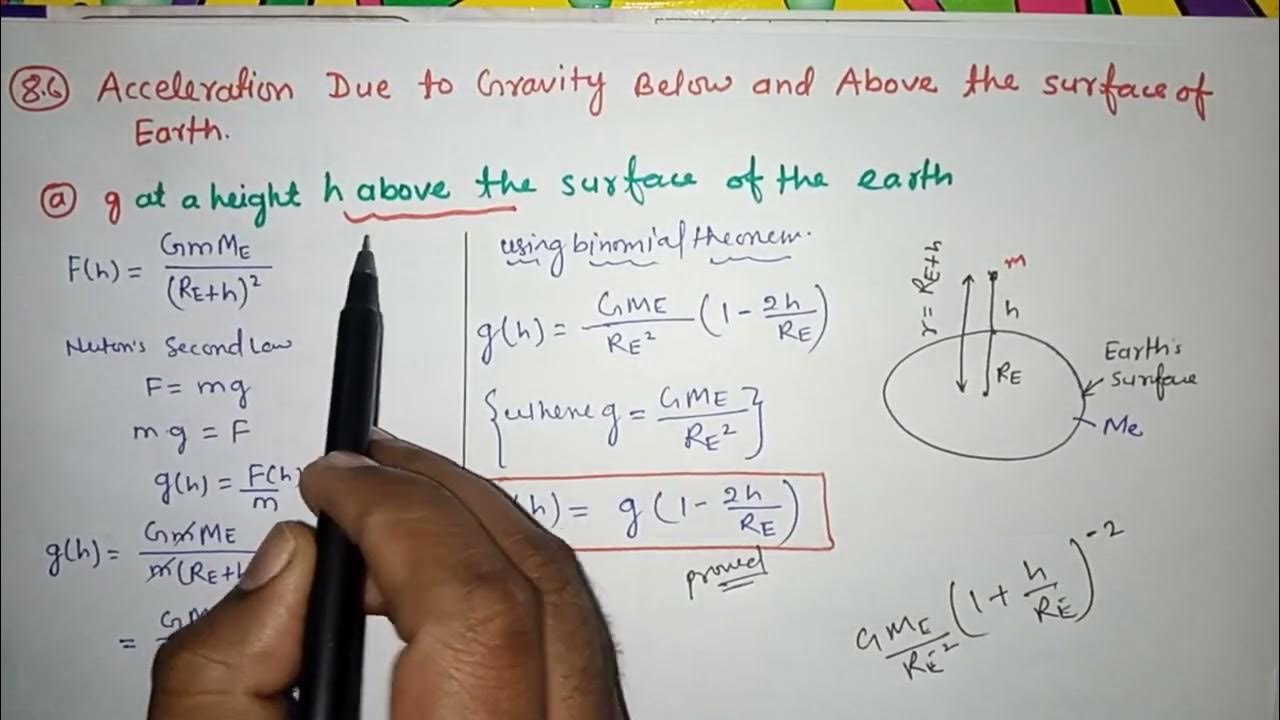 8.6 Acceleration Due to Gravity Below and Above the surface of
Earth.
a g at a height h above the surface of the earth
F(h) = GmME / (RE+h)²
Nuton's Second Law
F = mg
mg = F
g(h) = F(h) / m
g(h) = GmME / m(RE+h
=
using binomial theonem.
g(h) = GME / RE² (1 - 2h / RE)
{ whene g = GME / RE² }
h) = g (1 - 2h / RE)
proved
m
r = RE+h
h
RE
Earth's
Surface
Me
GME / RE² (1 + h / RE)⁻²